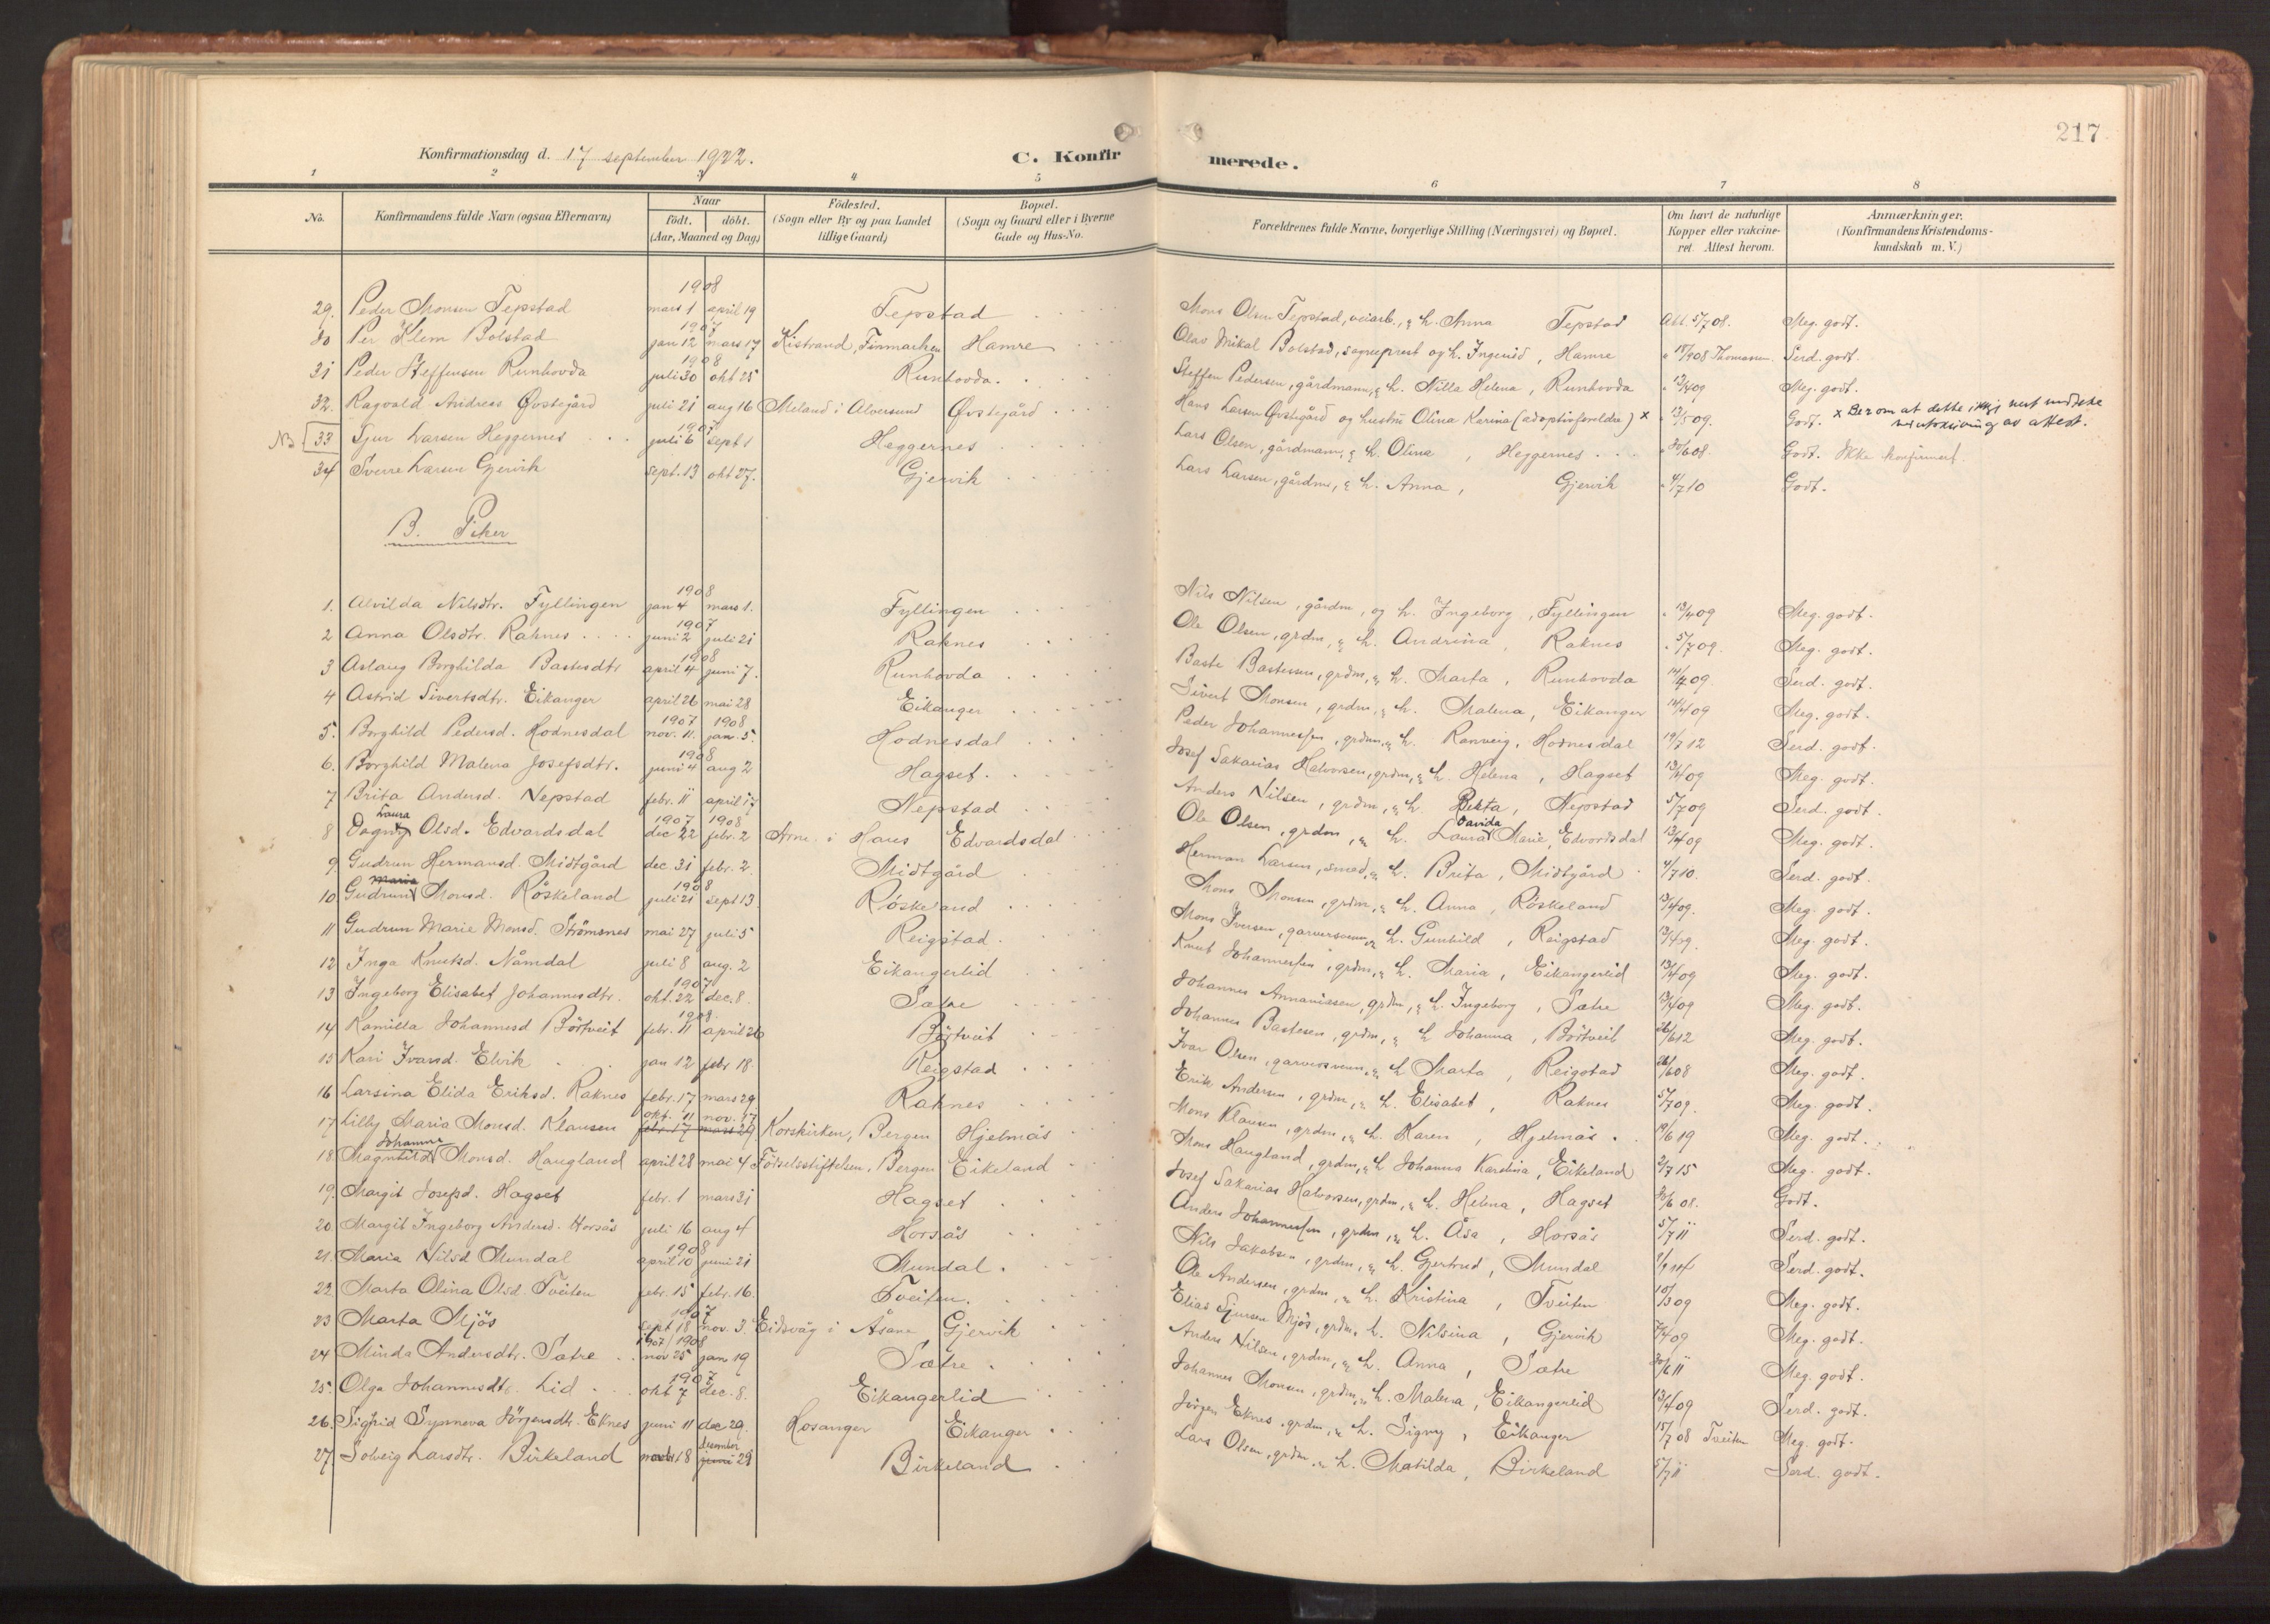 217
Konfirmationsdag d. 17 september 1922.
C. Konfirmerede.
1 2 3 4 5 6 7 8
No. Konfirmandens fulde Navn (ogsaa Efternavn) Naar Födt. döbt. (Aar, Maaned og Dag) Födested. (Sogn eller By og paa Landet tillige Gaard) Bopæl. (Sogn og Gaard eller i Byerne Gade og Hus-No. Forældrenes fulde Navne, borgerlige Stilling (Næringsvei) og Bopæl. Om havt de naturlige Kopper eller vakcineret Attest herom. Anmærkninger. (Konfirmandens Kristendomskundskab m. V.)
1908
29. Peder Monsen Tepstad mars 1 april 19 Tepstad Mons Olsen Tepstad, veiarb., & h. Anna Tepstad Att. 5/7 08. Meg. godt.
1907
30 Per Klem Bolstad jan 12 mars 17 Kistrand, Finmarken Hamre Olav Mikal Bolstad, sogneprest og h. Ingerid, Hamre 908 Thomassen. Særd. godt.
1908
31 Peder Steffensen Runhovda juli 30 okt 25 Runhovda. Steffen Pedersen, gårdmann, & h. Nilla Helena, Runhovda 13/4 09 Meg. godt.
32. Ragvald Andreas Øvstegård juli 21 aug 16 Meland i Alversund Øvstegård Hans Larsen Øvstegård og hustru Olina Karina (adoptivforeldre) x 13/5 09. Godt. x Ber om at dette ikkje vert av attest.
1907
NB 33 Sjur Larsen Heggernes juli 6 sept 1 Heggernes Lars Olsen, gårdmann, & h. Olina, Heggernes 30/6 08. Godt. Ikke konfirmert.
34 Sverre Larsen Gjervik sept. 13 okt 27. Gjervik Lars Larsen, gårdm., & h. Anna, Gjervik 4/7 10 Godt.
B. Piker
1908
1. Alvilda Nilsdtr. Fyllingen jan 4 mars 1. Fyllingen Nils Nilsen, gårdm, og h. Ingeborg, Fyllingen 13/4 09 Meg. godt.
1907
2 Anna Olsdtr. Raknes juni 2 juli 21 Raknes Ole Olsen, grdm, & h. Andrina, Raknes 5/7 09. Meg. godt.
1908
3 Aslaug Borghilda Bastesdtr april 4 juni 7. Runhovda Baste Bastesen, grdm, & h. Marta, Runhovda 14/4 09. Særd. godt.
4 Astrid Sivertsdtr. Eikanger april 26 mai 28 Eikanger Sivert Monsen, grdm, & h. Malena, Eikanger 14/4 09 Meg. godt.
1907 1908
5. Borghild Pedersd. Hodnesdal nov. 11. jan. 5. Hodnesdal Peder Johannessen, grdm, & h. Ranveig, Hodnesdal 19/7 12 Særd. godt.
1908
6. Borghild Malena Josefsdtr. juni 4 aug 2 Hagset. Josef Sakarias Halvorsen, grdm, & h. Helena, Hagset 13/4 09 Meg. godt.
7 Brita Andersd. Nepstad febr. 11 april 17 Nepstad Anders Nilsen, grdm, & h. Berta, Nepstad 5/7 09 Særd. godt.
1907 1908
8 Dagny Laura Olsd. Edvardsdal dec 22 febr. 2 Arne i Haus Edvardsdal Ole Olsen, grdm, & h. Laura Davida Marie, Edvardsdal 13/4 09 Meg. godt.
9 Gudrun Hermansd. Midtgård dec. 31 febr. 2. Midtgård Herman Larsen, smed, & h. Brita, Midtgård 4/7 10. Særd. godt.
1908
10 Gudrun Maria Monsd. Röskeland juli 21 sept 13 Röskeland Mons Monsen, grdm, & h. Anna, Röskeland 13/4 09. Meg. godt.
11 Gudrun Marie Monsd. Strömsnes mai 27 juli 5 Reigstad. Mons Iversen, garversvenn, & h. Gunhild, Reigstad 13/4 09. Meg. godt.
12 Inga Knutsd. Nåmdal juli 8 aug. 2 Eikangerlid Knut Johannessen, grdm, & h. Maria, Eikangerlid 13/4 09 Meg. godt.
1907
13 Ingeborg Elisabet Johannesdtr. okt. 22 dec. 8. Sætre Johannes Annaniassen, grdm, & h. Ingeborg, Sætre 13/4 09 Meg. godt.
1908.
14 Kamilla Johannesd Börtveit febr. 11 april 26 Börtveit Johannes Bastesen, grdm, & h Johanna, Börtveit 26/6 12 Meg. godt.
15 Kari Ivarsd. Elvik jan 12 febr 18. Reigstad Ivar Olsen, garversvenn, & h Marta, Reigstad 26/6 08 Meg. godt.
16 Larsina Elida Eriksd. Raknes febr. 17 mars 29 Raknes Erik Andersen, grdm, & h. Elisabet, Raknes 5/7 09. Meg. godt.
okt. 11 nov. 17
17 Lilly Maria Monsd. Klausen febr. 17 mars 29 Korskirken, Bergen Hjelmås Mons Klausen, grdm, & h. Karen, Hjelmås. 19/6 19 Meg. godt.
18. Magnhild Johanne Monsd. Haugland april 28 mai 4 Födselsstiftelsen, Bergen Eikeland Mons Haugland, grdm, & h Johanna Karolina, Eikeland 2/7 15 Meg. godt.
19. Margit Josefsd. Hagset febr. 1 mars 31 Hagset Josef Sakarias Halvorsen, grdm, & h. Helena, Hagset 30/6 08. Godt.
20. Margit Ingeborg Andersd. Horsås juli 16 aug 4 Horsås Anders Johannessen, grdm, & h. Åsa, Horsås 5/7 11 Særd. godt.
1908
21. Maria Nilsd Mundal april 10 juni 21 Mundal. Nils Jakobsen, grdm, & h. Gjertrud, Mundal Særd. godt.
22 Marta Olina Olsd. Tveiten febr. 15 febr. 16. Tveiten. Ole Andersen, grdm, & h. Kristina, Tveiten 10/3 09 Meg. godt.
1907
23 Marta Mjös sept 18 nov. 3. Eidsvåg i Åsane Gjervik Elias Sjursen Mjös, grdm. h. Nilsina, Gjervik 7/4 09 Meg. godt.
1907/1908
24 Minda Andersdtr. Sætre nov 25 jan 19 Sætre Anders Nilsen, grdm, & h. Anna, Sætre 30/6 11 Meg. godt.
1907
25. Olga Johannesdtr. Lid okt 7 dec. 8. Eikangerlid Johannes Monsen, grdm, & h. Malena, Eikangerlid 13/4 09 Særd. godt.
26. Sigfrid Synneva Jörgensdtr. Eknes juni 11 dec 29. Hosanger Eikanger Jörgen Eknes, grdm, & h. Signy, Eikanger 15/7 08 Tveiten Meg. godt.
27 Solveig Larsdtr. Birkeland 18 december juni 29 Birkeland Lars Olsen, grdm. & h. Matilda, Birkeland 5/7 11 Særd. godt.